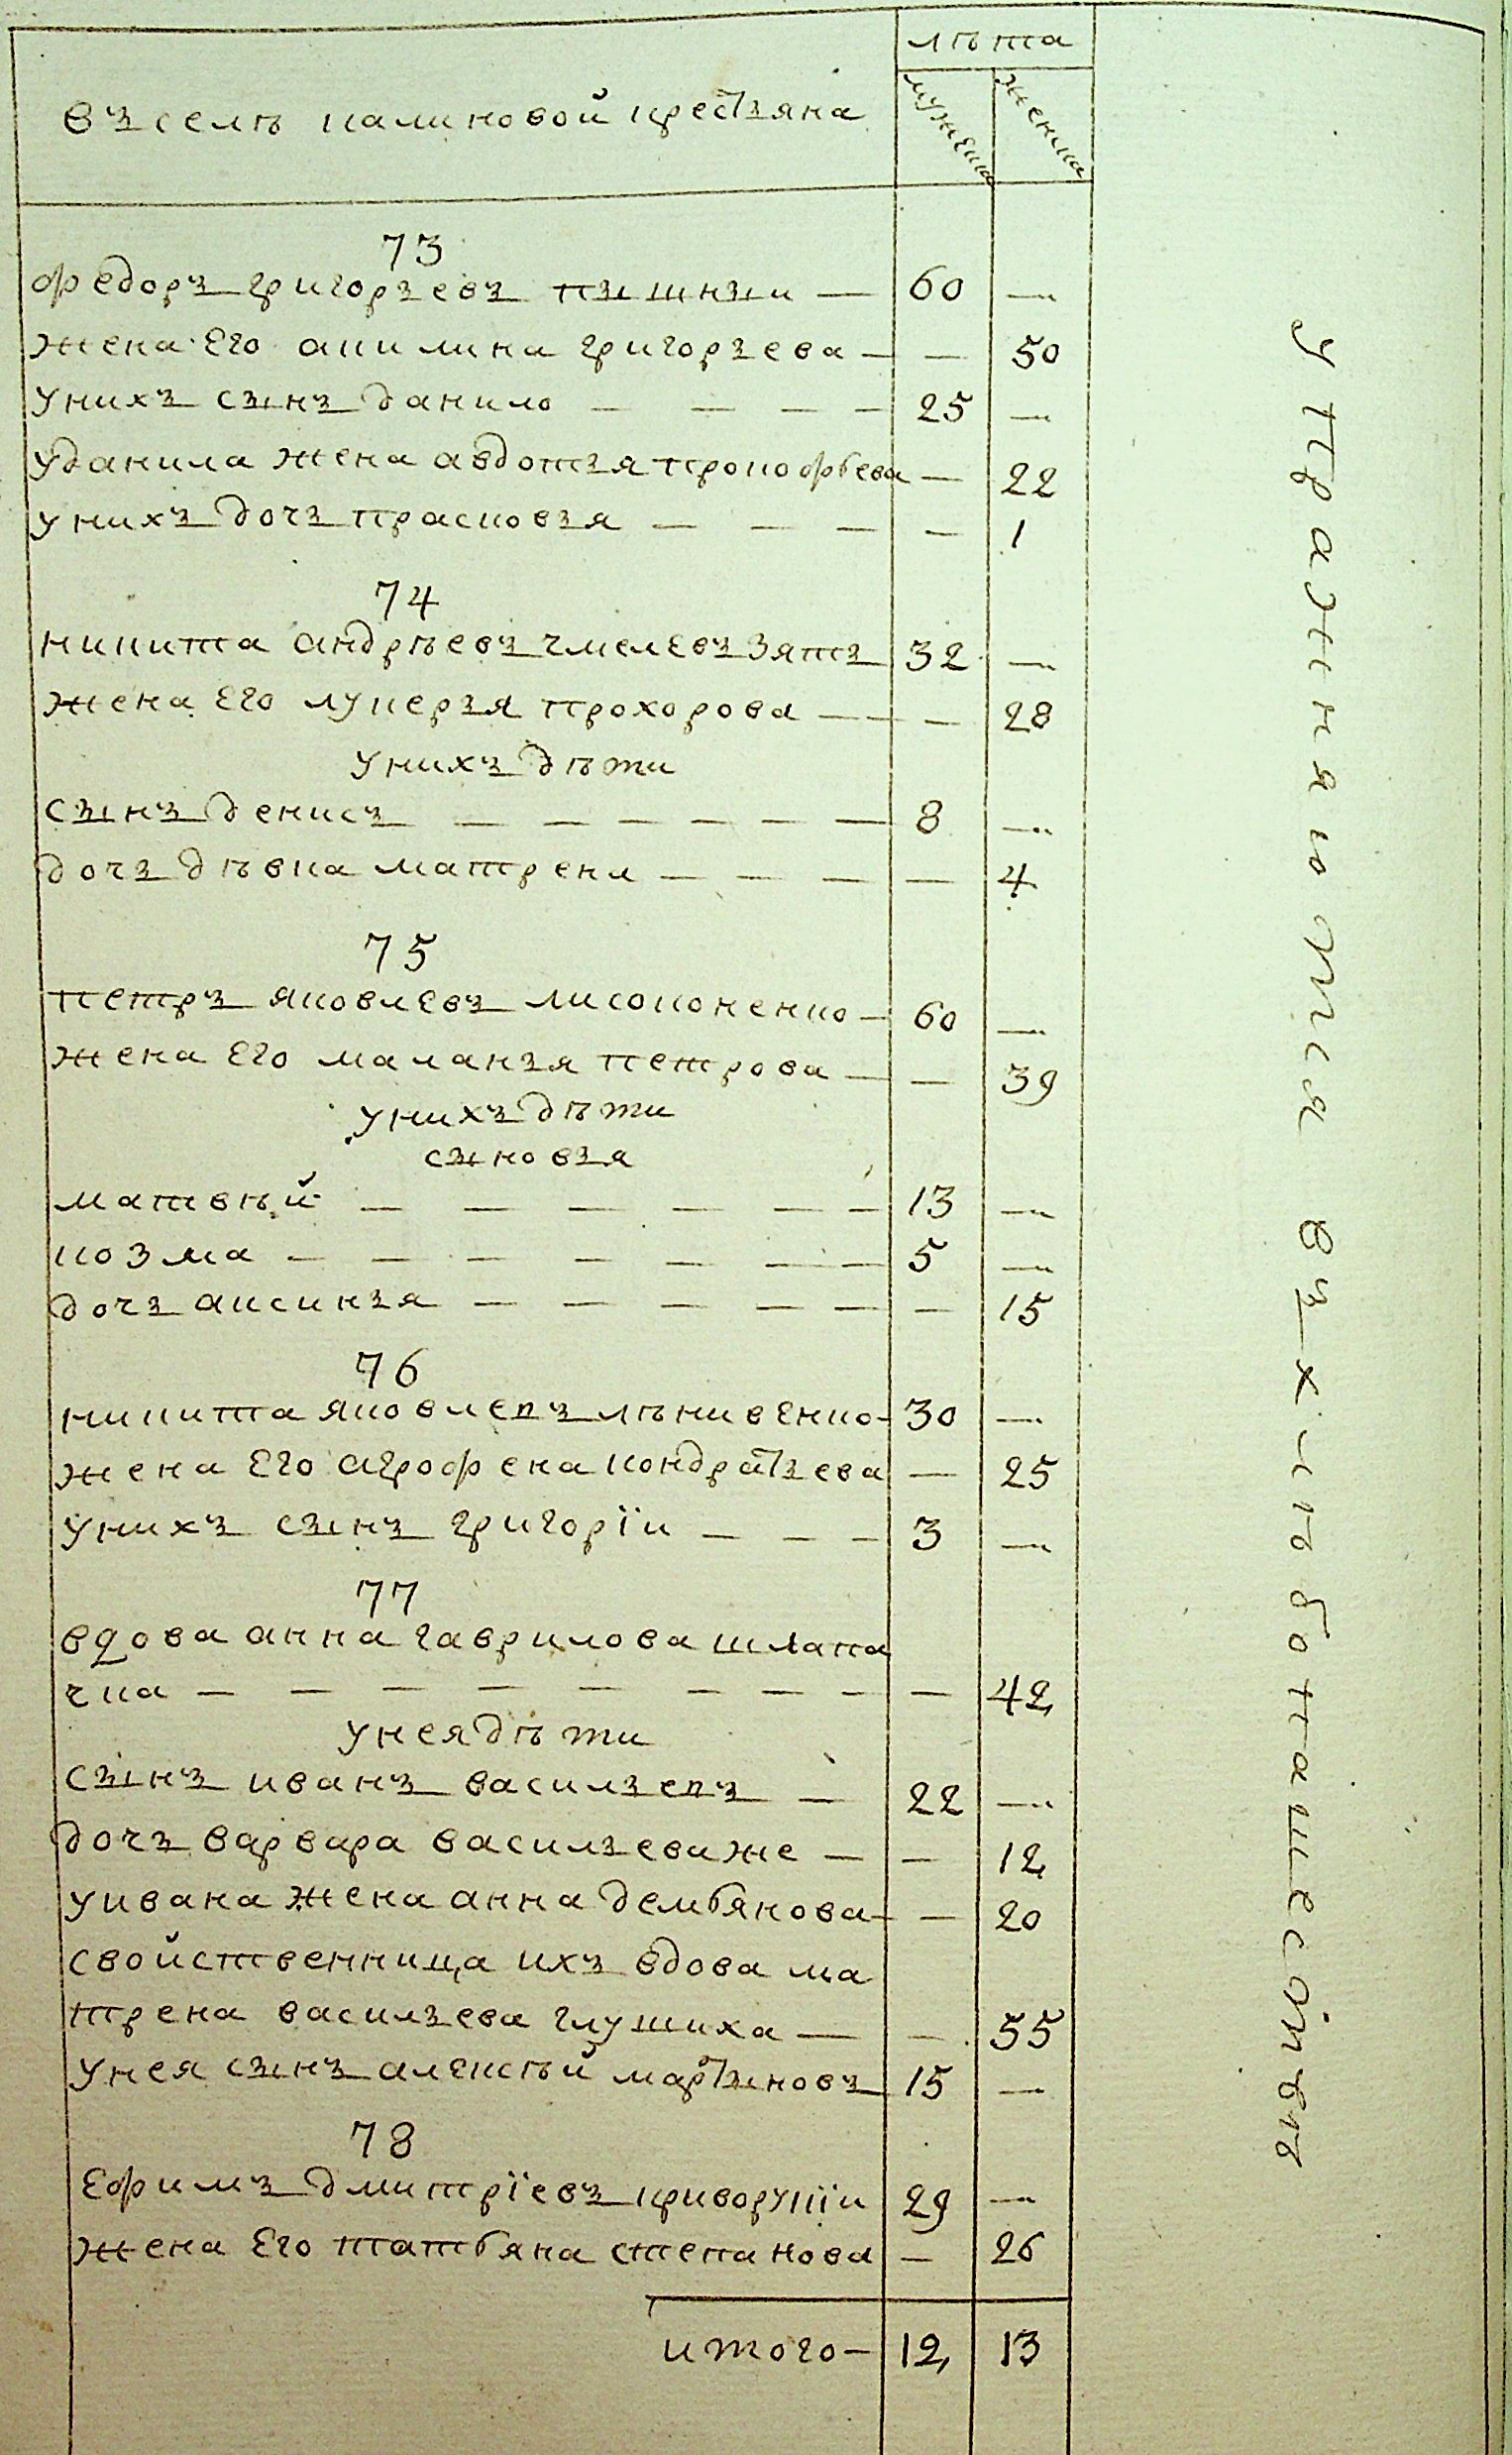 лѣта
въ селѣ калиновой крестьяна
мужеска женска
73
федоръ григорьевъ пышныи — 60 —
жена его акилина григорьева — — 50
у нихъ сынъ данило — — — — 25 —
у данила жена авдотья прокофьева — 22
у нихъ дочь прасковья — — — — 1
74
никита андрѣевъ чмелевъ зять 32 —
жена его лукерья прохорова — — — 28
у нихъ дѣти
сынъ денисъ — — — — — — 8 —
дочь дѣвка матрена — — — — 4
75
петръ яковлевъ лисоконенко — 60 —
жена его маланья петрова — — 39
у нихъ дѣти
сыновья
матвѣй — — — — — — 13 —
козма — — — — — — — 5 —
дочь аксинья — — — — — — 15
76
никита яковлевъ лѣнивенко — 30 —
жена его агрофена кондратьева — 25
у нихъ сынъ григоріи — — — 3 —
77
вдова анна гаврилова шлапа
чка — — — — — — — — — 42
у нея дѣти
сынъ иванъ васильевъ — 22 —
дочь варвара васильева же — — 12
у ивана жена анна дембянова — — 20
свойственница ихъ вдова ма
трена васильева глушиха — — 55
у нея сынъ алексѣй мартыновъ 15 —
78
ефимъ дмитріевъ криворукіи 29 —
жена его татьяна степанова — 26
итого — 12 13
упражняются въ хлѣбопашествѣ